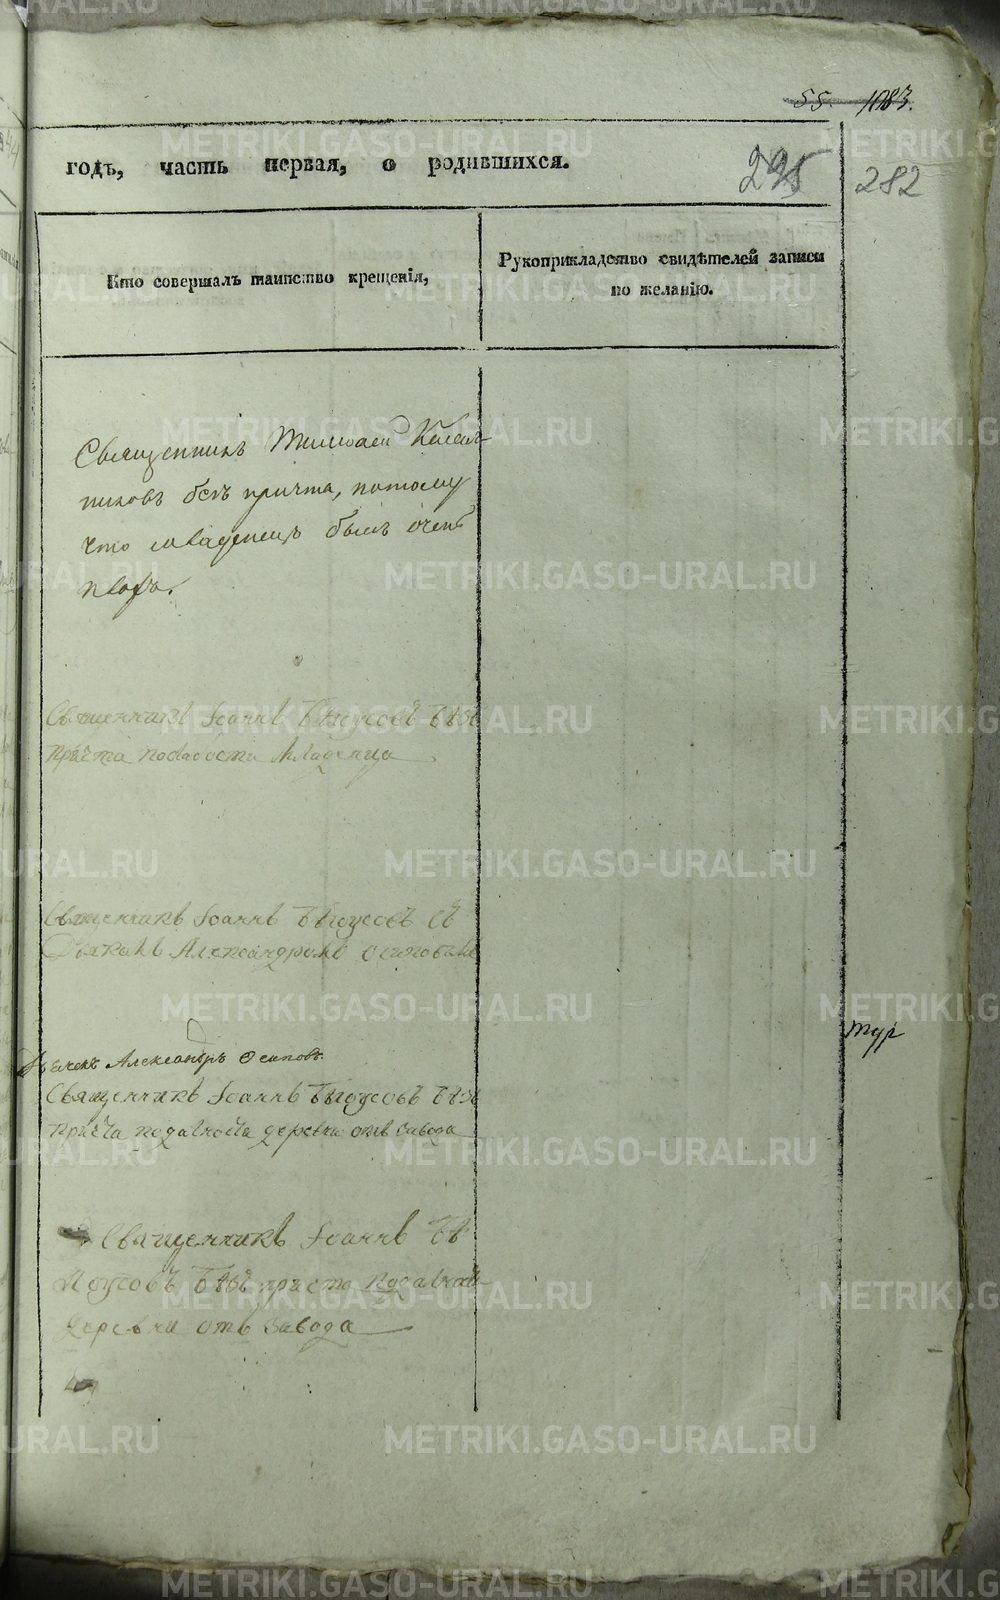 55. 1083.
годъ, часть первая, о родившихся.
295
282
Кто совершалъ таинство крещенія,
Рукоприкладство свидѣтелей записи
по желанію.
Священникъ
никовъ безъ причта, потому
что младенецъ былъ очень
плохъ.
Священникъ Іоаннъ Бѣлоусовъ безъ
причта послабости младенца
Священникъ Іоаннъ Бѣлоусовъ съ
Дьякономъ Александромъ Осиповымъ
Дьяконъ Александръ Осиповъ
Священникъ Іоаннъ Бѣлоусовъ безъ
причта подальности деревни отъ завода
тур
Священникъ Іоаннъ Бѣ
лоусовъ безъ причта подальности
деревни отъ завода
METRIKI.GASO-URAL.RU